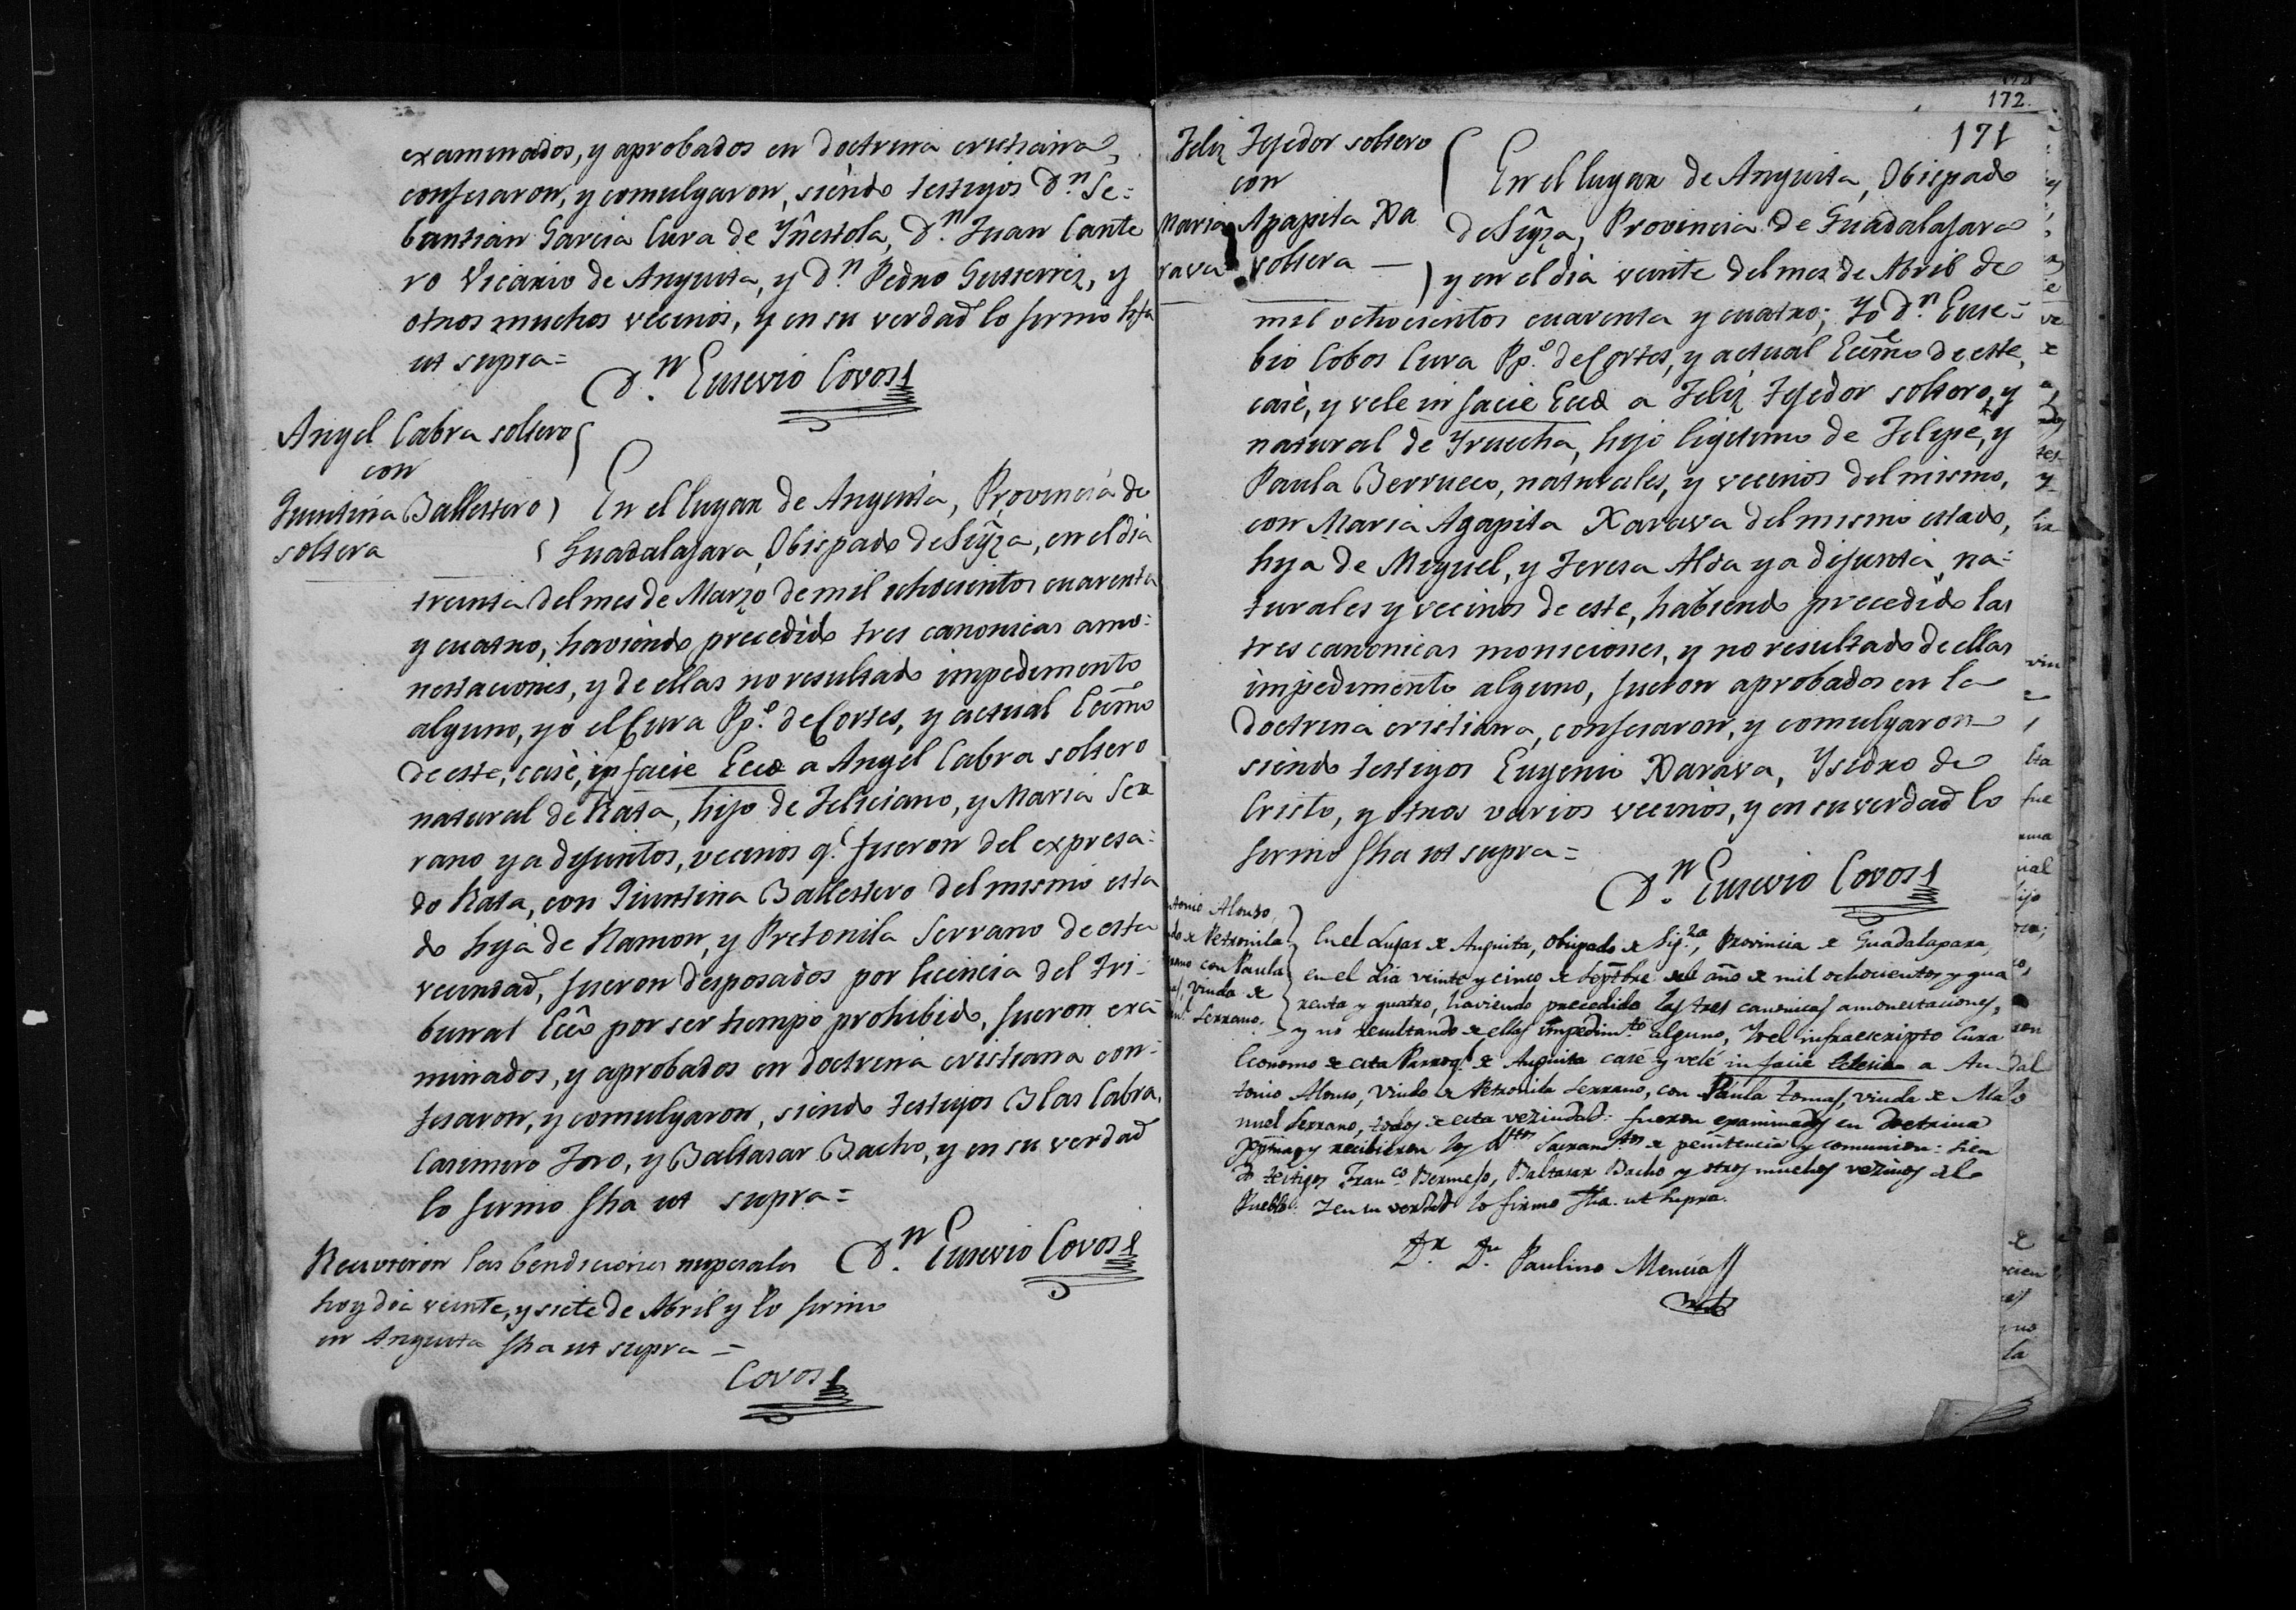 examinados, y aprobados en doctrina cristiana,
confesaron, y comulgaron, siendo testigos D.n Se=
bastian Garcia Cura de Yñestola, D.n Juan Cante
ro Vicario de Anguita, y D.n Pedro Gutierrez, y
otros muchos vecinos, y en su verdad lo firmo fha
ut supra=
D.n Eusevio Covos
Angel Cabra soltero
con
Quintina Ballestero
soltera
En el lugar de Anguita, Provincia de
Guadalajara, Obispado de Sigza, en el dia
treinta del mes de Marzo de mil ochocientos cuarenta
y cuatro, haviendo precedido tres canonicas amo=
nestaciones, y de ellas no resultado impedimento
alguno, yo el Cura Pp.o de Cortes, y actual Ecumo
de este, casè, in facie Ecce a Angel Cabra soltero
natural de Rata, hijo de Feliciano, y Maria Ser
rano ya difuntos, vecinos q.e fueron del expresa=
do Rata, con Quintina Ballestero del mismo esta
do hija de Ramon, y Pretonila Serrano de esta
vecindad, fueron desposados por licencia del Tri=
bunal Ecco por ser tiempo prohibido, fueron exa=
minados, y aprobados en doctrina cristiana con=
fesaron, y comulgaron, siendo testigos Blas Cabra,
Casimiro Toro, y Baltasar Bacho, y en su verdad
lo firmo fha ut supra=
D.n Eusevio Covos
Recivieron las bendiciones nupciales
hoy dia veinte, y siete de Abril y lo firmo
en Anguita fha ut supra=
Covos
172
171
Feliz Tejedor soltero
con
Maria Agapita Xa
rava soltera
En el lugar de Anguita, Obispado
de Sigza, Provincia de Guadalajara
y en el dia veinte del mes de Abril de
mil ochocientos cuarenta y cuatro; Yo D.n Euse=
bio Cobos Cura Pp.o de Cortes, y actual Ecumo de este,
casè, y vele in facie Ecce a Feliz Tejedor soltero, y
natural de Yruecha, hijo ligitimo de Felipe, y
Paula Berrueco, naturales, y vecinos del mismo,
con Maria Agapita Xarava del mismo estado,
hija de Miguel, y Teresa Alda ya difunta, na=
turales y vecinos de este, habiendo precedido las
tres canonicas moniciones, y no resultado de ellas
impedimento alguno, fueron aprobados en la
doctrina cristiana, confesaron, y comulgaron
siendo testigos Eugenio Xarava, Ysidro de
Cristo, y otros varios vecinos, y en su verdad lo
firmo fha ut supra=
D.n Eusevio Covos
Alonso,
de Petronila
con Paula
viuda de
Serrano.
En el Lugar de Anguita, Obispado de Sig.za, Provincia de Guadalaxara,
en el dia veinte y cinco de Septbre del año de mil ochocientos y qua
renta y quatro, haviendo precedido las tres canonicas amonestaciones,
y no resultando de ellas impedim.to alguno, Yo el infraescripto Cura
Economo de esta Parroq.l de Anguita casé y velé in facie Eclesie a An
tonio Alonso, Viudo de Petronila Serrano, con Paula Tomas, viuda de Ma
nuel Serrano, todos de esta vezindad: fueron examinados en Doctrina
Xptiana y recibieron los Stos Sacram.tos de penitencia y comunion: sien
do testigos Fran.co Bermejo, Baltasar Bacho y otros muchos vezinos del
Pueblo. Y en su verdad lo firmo fha. ut supra.
D.n D.n Paulino Mencia